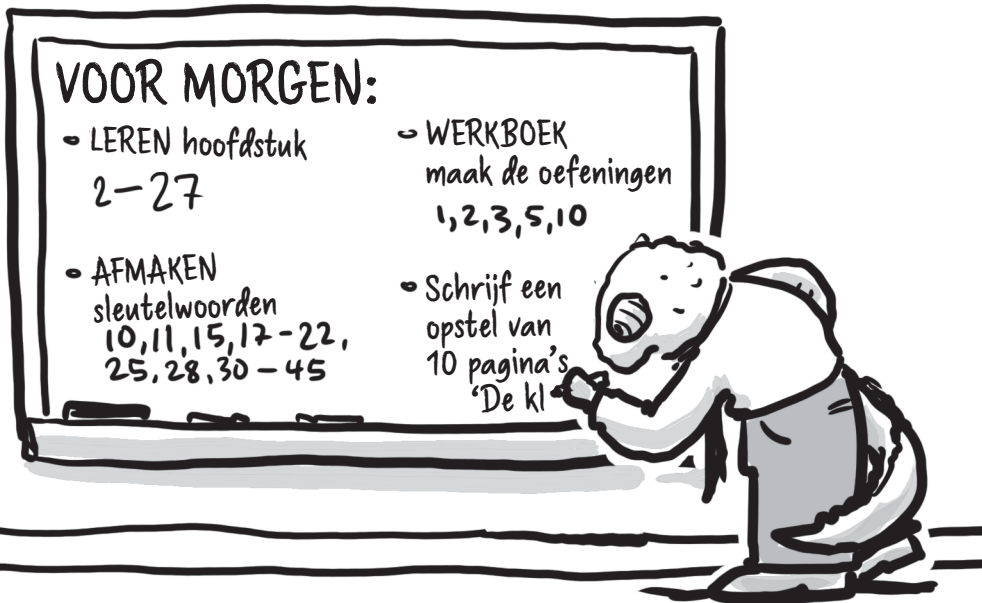 VOOR MORGEN:
- LEREN hoofdstuk
2-27
- AFMAKEN
sleutelwoorden
10, 11, 15, 17-22,
25, 28, 30-45
- WERKBOEK
maak de oefeningen
1, 2, 3, 5, 10
- Schrijf een
opstel van
10 pagina's
'De kl